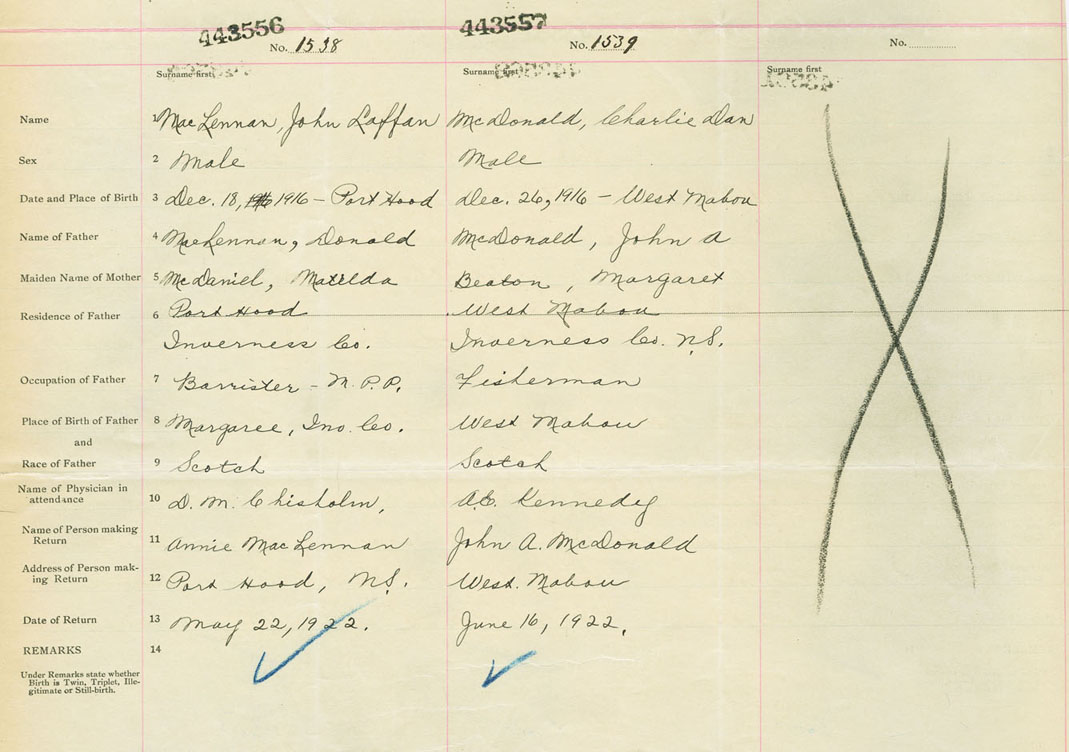 443556
443557
No. 1538
No. 1539
No.
Surname first
Surname first
Surname first
Name 1 MacLennan, John Laffan McDonald, Charlie Dan
Sex 2 Male Male
Date and Place of Birth 3 Dec. 18, 1916 – Port Hood Dec. 26, 1916 – West Mabou
Name of Father 4 MacLennan, Donald McDonald, John A
Maiden Name of Mother 5 McDaniel, Matilda Beaton, Margaret
Residence of Father 6 Port Hood West Mabou
Inverness Co. Inverness Co. N.S.
Occupation of Father 7 Barrister – M.P.P. Fisherman
Place of Birth of Father 8 Margaree, Inv. Co. West Mabou
and
Race of Father 9 Scotch Scotch
Name of Physician in
attendance 10 D. M. Chisholm, A.C. Kennedy
Name of Person making
Return 11 Annie MacLennan John A. McDonald
Address of Person mak-
ing Return 12 Port Hood, N.S. West. Mabou
Date of Return 13 May 22, 1922. June 16, 1922.
REMARKS 14
Under Remarks state whether
Birth is Twin, Triplet, Ille-
gitimate or Still-birth.